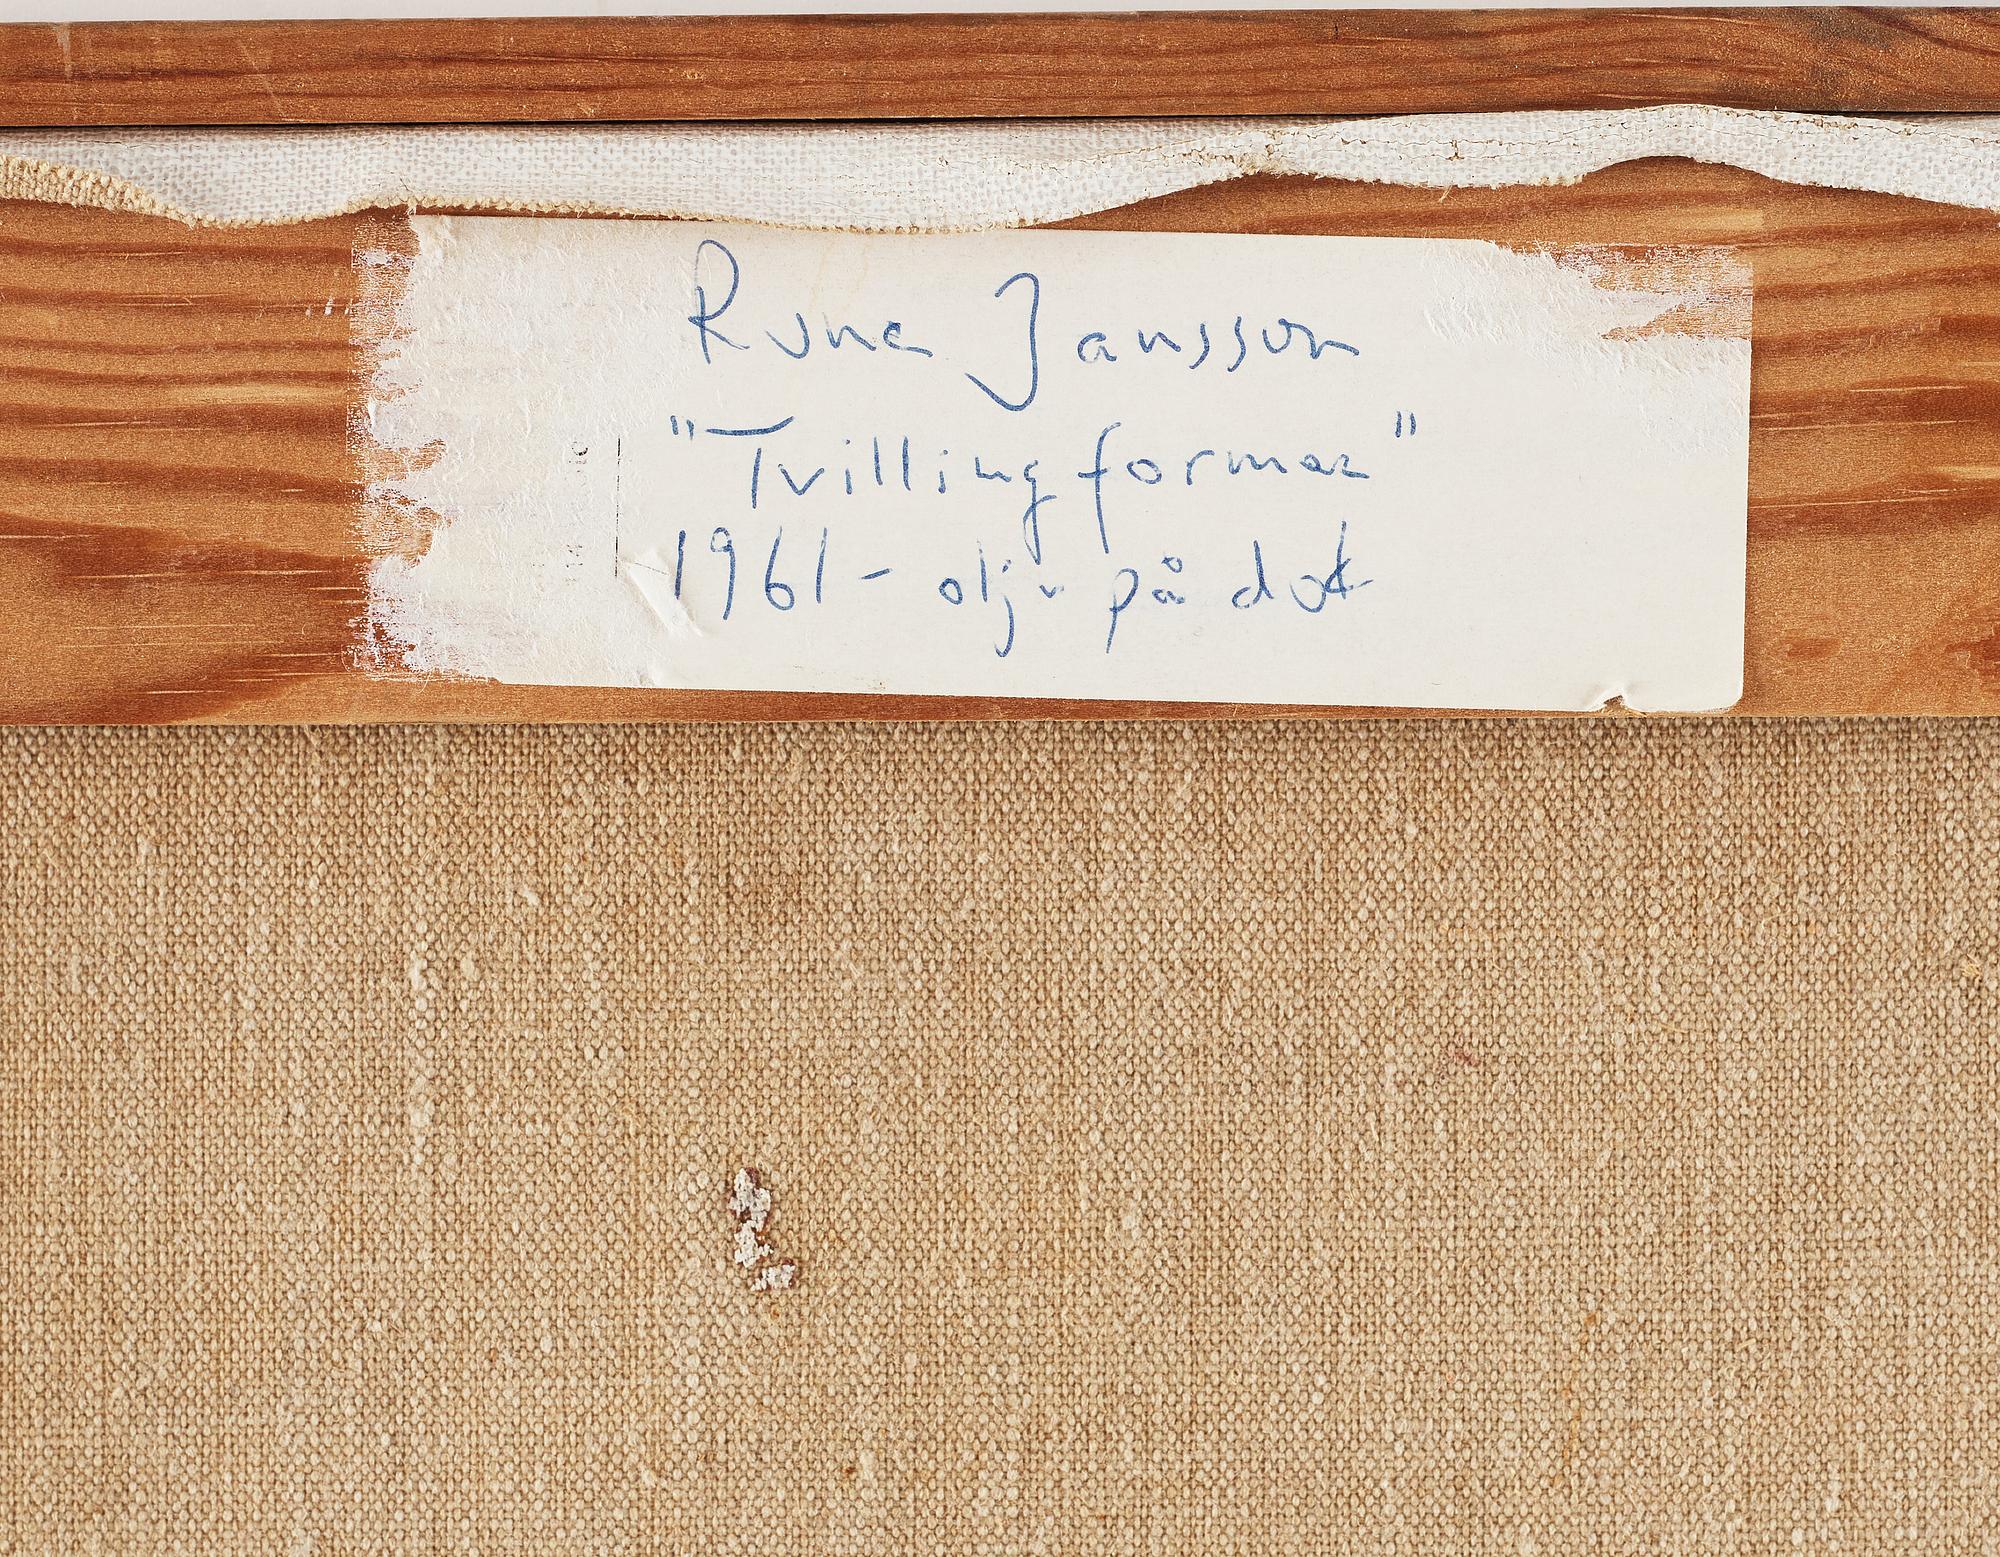 Rune Jansson
"Tvillingformer"
1961 - olja på duk